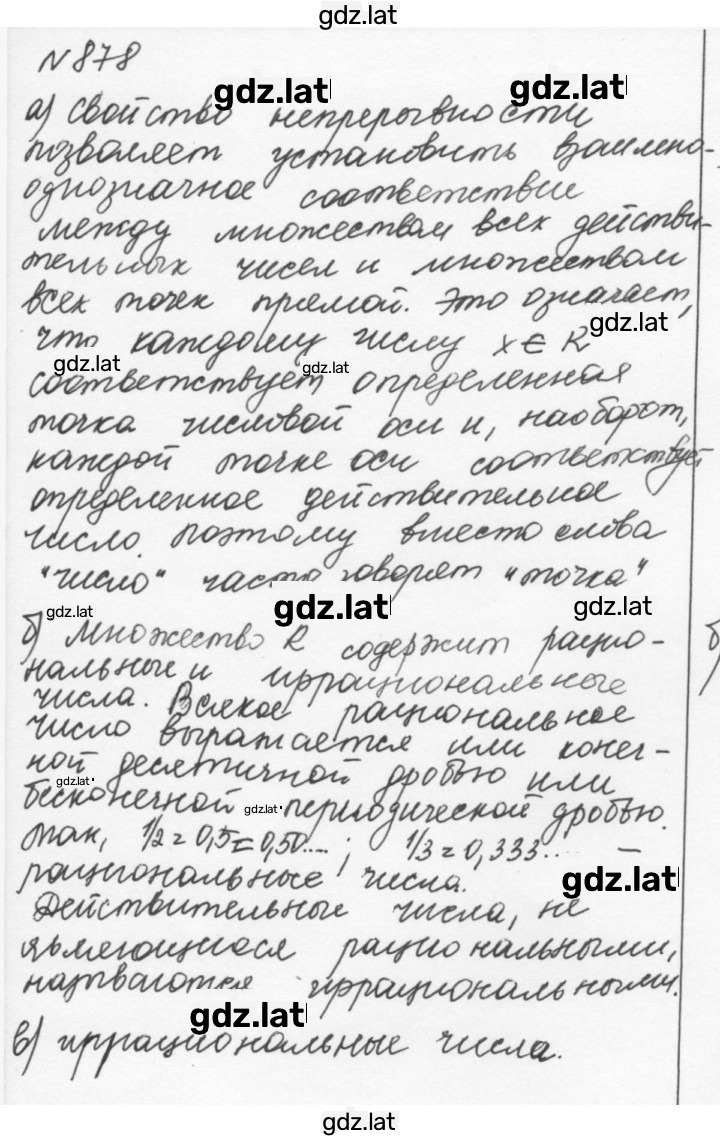 gdz.lat
N 878
gdz.lat gdz.lat
а) Свойство непрерывности
позволяет установить взаимно-
однозначное соответствие
между множеством всех действи-
тельных чисел и множеством
всех точек прямой. Это означает,
gdz.lat
что каждому числу x ∈ R
gdz.lat gdz.lat
соответствует определенная
точка числовой оси и, наоборот,
каждой точке оси соответствует
определенное действительное
число. Поэтому вместо слова
"число" часто говорят "точка"
gdz.lat gdz.lat gdz.lat
б) Множество R содержит рацио-
нальные и иррациональные
числа. Всякое рациональное
число выражается или конеч-
ной десятичной дробью или
gdz.lat gdz.lat
бесконечной периодической дробью.
так, 1/2 = 0,5 = 0,50...; 1/3 = 0,333... –
рациональные числа.
gdz.lat
Действительные числа, не
являющиеся рациональными,
называются иррациональными.
gdz.lat
в) иррациональные числа.
gdz.lat